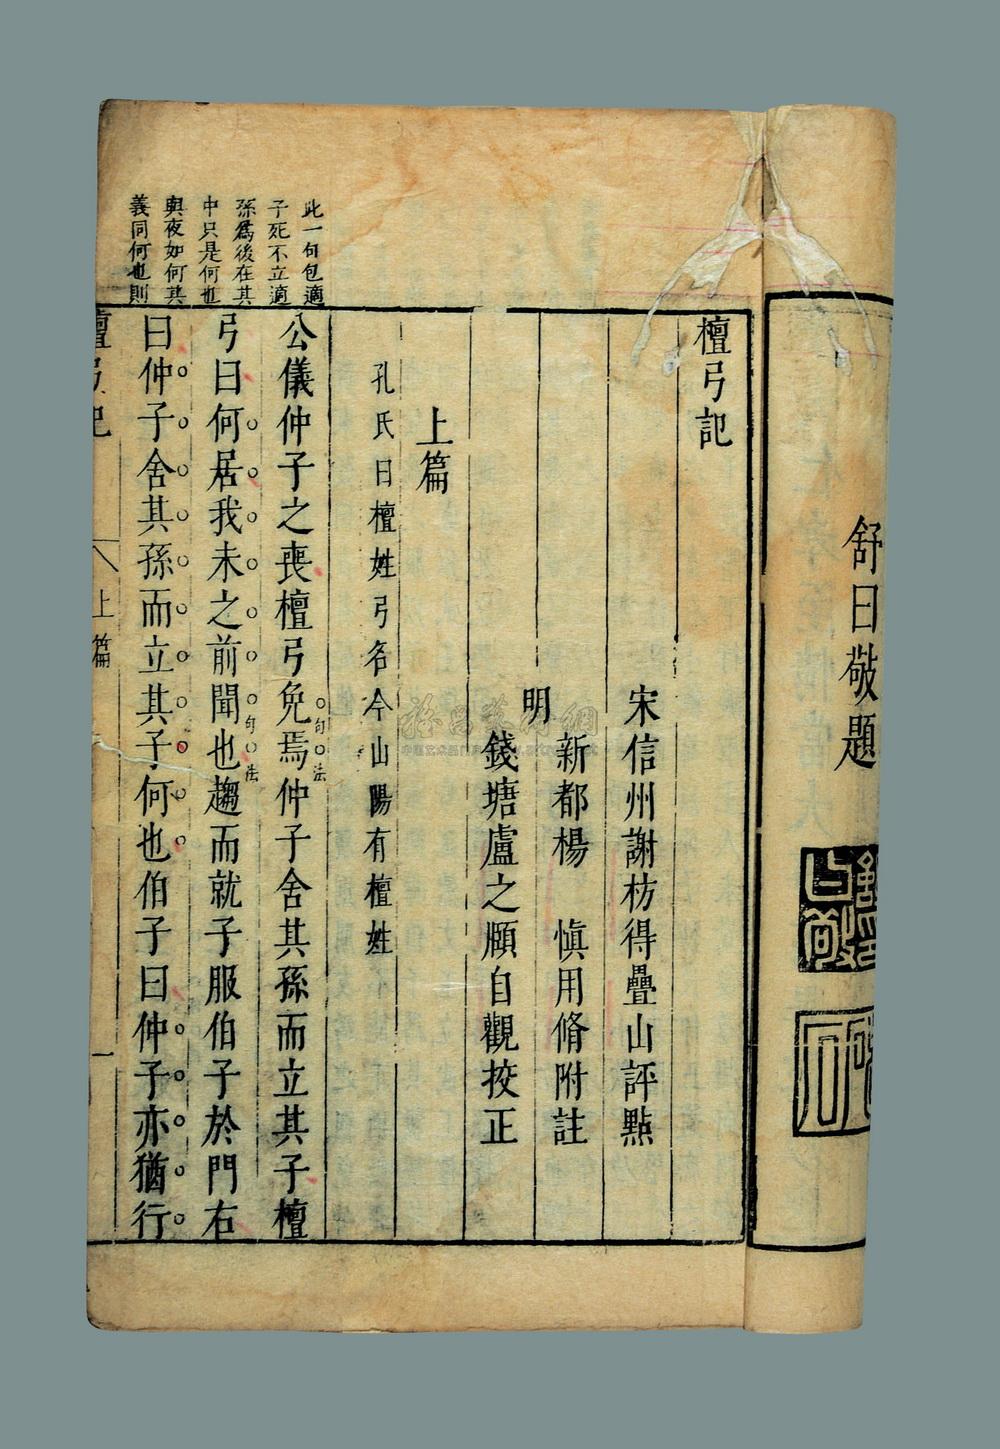 舒曰敬題
檀弓記
宋信州謝枋得疊山評㸃
明
新都楊 慎用脩附註
錢塘盧之頤自觀挍正
上篇
孔氏曰檀姓弓名今山陽有檀姓
公儀仲子之喪檀弓免焉仲子舍其孫而立其子檀
句法
弓曰何居我未之前聞也趨而就子服伯子於門右
句法
曰仲子舍其孫而立其子何也伯子曰仲子亦猶行
此一句包適
子死不立適
孫爲後在其
中只是何也
與夜如何其
義同何也則
檀弓記
上篇
一